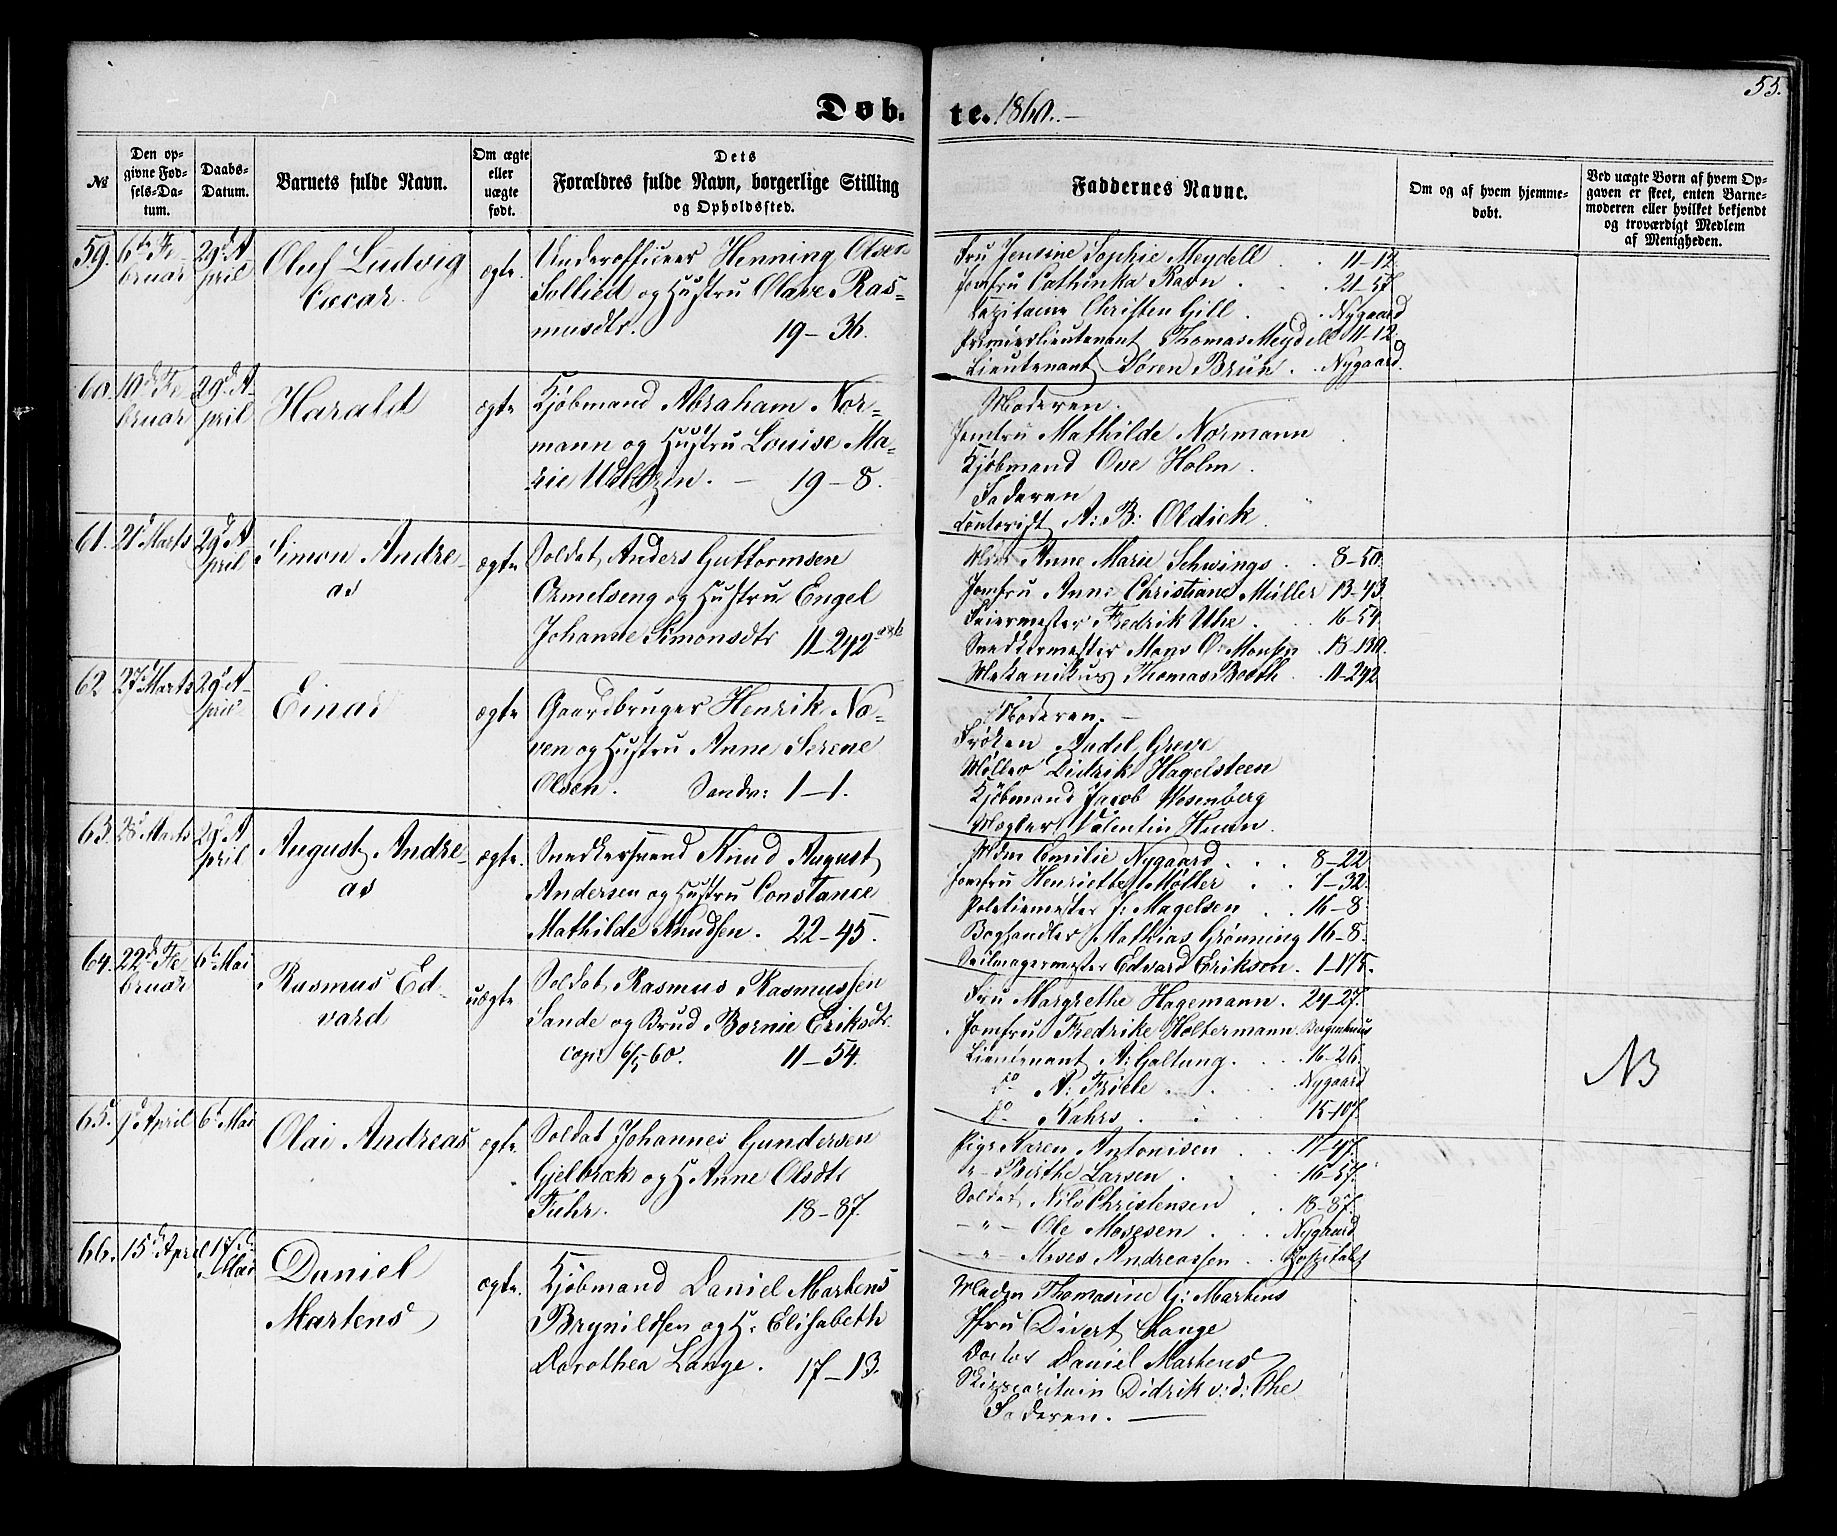 55.
Døb.
te. 1860.
No
Den op-
givne Fød-
sels-Da-
tum.
Daabs-
Datum.
Barnets fulde Navn.
Om ægte
eller
uægte
født.
Dets
Forældres fulde Navn, borgerlige Stilling
og Opholdssted.
Faddernes Navne.
Om og af hvem hjemme-
døbt.
Ved uægte Børn af hvem Op-
gaven er skeet, enten Barne-
moderen eller hvilket bekjendt
og troværdigt Medlem
af Menigheden.
59.
6te Fe-
bruar
29d A
pril
Oluf Ludvig
Oscar.
ægte.
Underofficeer Henning Olsen
Sollied og Hustru Olave Ras-
musdtr. 19-36.
Fru Jensine Sophie Meydell 11-12
Jomfru Cathinka Ravn 21-57
Capitaine Christen Gill. Nygaard
Premierlieutenant Thomas Meydell 11-12.
Lieutenant Søren Brün. Nygaard.
60.
10de Fe
bruar
29d A
pril
Harald
ægte
Kjøbmand Abraham Nor-
mann og Hustru Louise Ma-
rie 19-8.
Moderen.
Jomfru Mathilde Normann
Kjøbmand Ove Holm.
Faderen
Contorist A: B: Oldick.
61.
21d Marts
29d A
pril
Simon Andre-
as
ægte
Soldat Anders Guttormsen
Ormelseng og Hustru Engel
Johanne Simonsdtr 11-292
Anne Marie Schwings 8-50
Jomfru Anne Christiane Müller 13-43.
Feiermester Fredrik Uhre. 16-54
Snedkermester Mons O. Monsen 13-130.
Mekanikus Thomas Booth. 11-292
62
27d Marts
29d A-
pril
Einar
ægte
Gaardbruger Henrik No-
ven og Hustru Anne Serene
Olsen. Sandv: 1-1.
Moderen.
Frøken Aadel Greve
Møller Didrik Hagelsteen
Kjøbmand Jacob Wesenberg
Mægler Valentin Huun.
63.
28d Marts
29d A
pril
August Andre-
as
ægte.
Snedkersvend Knud August
Andersen og Hustru Constance
Mathilde Knudsen. 22-45.
Mdm Emilie Nygaard 8-22
Jomfru Henriette Möller 7-32.
Politiemester J: Magelsen 16-8
Boghandler Mathias Grønning 16-8.
Seilmagermester Edvard Erikson. 1-175.
64.
22d Fe
bruar
6te Mai
Rasmus Ed-
vard
uægte
Soldat Rasmus Rasmussen
Sande og Brud Bornie Eriksdtr.
cop. 6/5 60. 11-54.
Fru Margrethe Hagemann. 24-27.
Jomfru Fredrike Holtermann. Bergenhuus
Lieutenant A: Galtung. 16-26.
do A: Friele Nygaard
do Kahrs 15-107.
NB
65.
1d April
6t Mai
Olai Andreas
ægte.
Soldat Johannes Gundersen
Gjelbræk og H Anne Olsdtr
Fuhr. 18-87.
Pige Karen Antonisen 17-47.
" - Birthe Larsen 16-57.
Soldat Nils Christensen 18-87.
- " - Ole Mosesen Nygaard
- " - Moses Andreassen. Hospitalet
66.
15de April
17de
Mai
Daniel
Martens
ægte.
Kjøbmand Daniel Martens
Brynildsen og H. Elisabeth
Dorothea Lange. 17-13.
Madm Thomasine G: Martens
Jfru Divert Lange
Doctor Daniel Martens
Skibscapitain Didrik v: d: Ohe
Faderen.